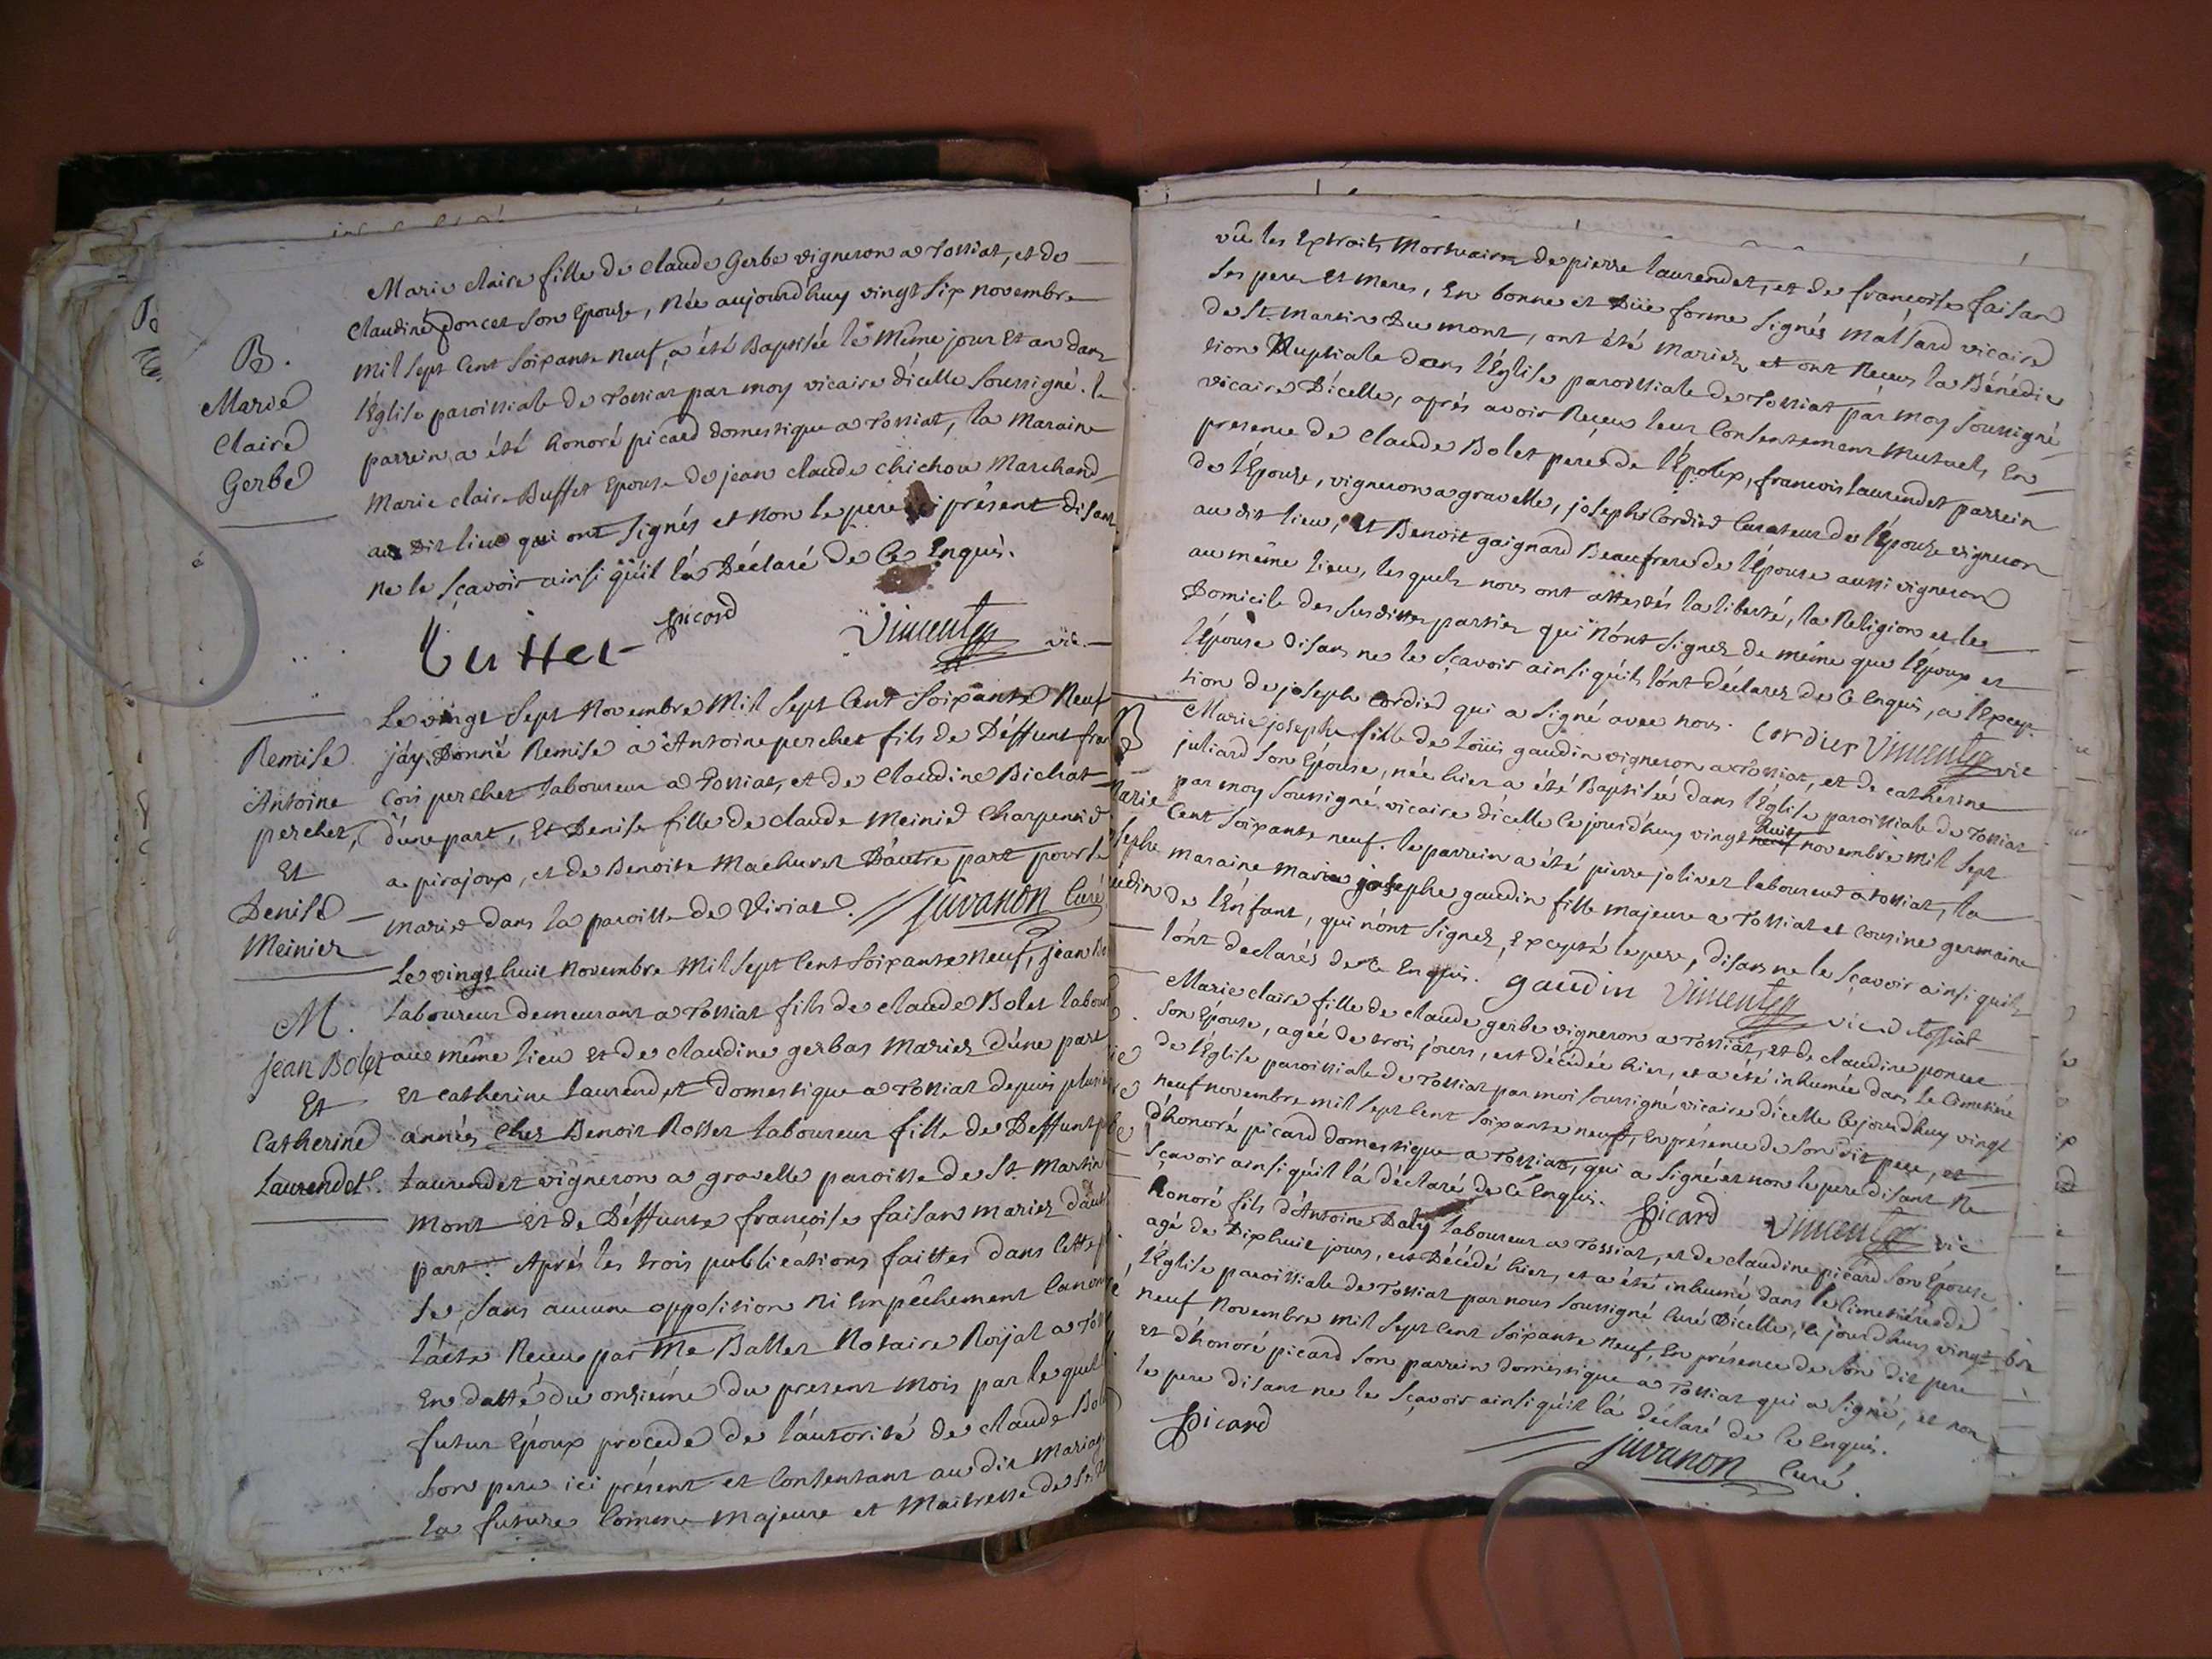 Marie claire fille de claude Gerbe vigneron a Tossiat, et de
claudine poncet son Epouse, née aujourd'huy vingt six novembre
B.
Marie
Claire
Gerbe
mil sept cent soixante neuf, a été Baptisée le même jour et an dans
l'église paroissiale de Tossiat par moy vicaire d'icelle soussigné. le
parrein a été honoré picard domestique a Tossiat, la maraine
marie claire Buffet Epouse de jean claude chichou marchand
au dit lieu qui ont signés et non le pere ici présent disant
ne le sçavoir ainsi qu'il l'a Déclaré de ce Enquis.
picard
Buffet
Vincent vic.
Remise
Antoine
percher,
Et
Denise
Meinier
Le vingt sept novembre mil sept cent soixante neuf
j'ay Donné Remise a Antoine percher fils de Déffunt fran
cois percher laboureur a Tossiat, et de claudine Bichat
d'une part, Et Denise fille de claude meinie charpentie
a pirajoux, et de Benoite machuret D'autre part pour se
marie dans la paroisse de Viriat. // juvanon curé
M.
jean Bolet
Et
Catherine
Laurendet.
Le vingt huit novembre mil sept cent soixante neuf, jean
laboureur demeurant a Tossiat fils de claude Bolet labour
au même lieu et de claudine gerbas mariez d'une part
Et catherine Laurendet domestique a Tossiat depuis plusie
années chez Benoit Rosset laboureur fille de Deffunt
Laurendet vigneron a gravelle paroisse de St. martin
mont et de Déffunte françoise faisan mariez d'aut
part. Aprés les trois publications faittes dans cette
se, sans aucune opposition ni Empêchement canon
l'acte Receu par me Ballet notaire Royal a Toss
En datte du onzieme du present mois par lequel
futur Epoux procede de l'autorité de claude Bol
son pere ici présent et consentant au dit mariag
la future comme majeure et maitresse de
vû les Extraits mortuaires de pierre laurendet, et de francoise faisan
ses pere et meres, en bonne et Düe forme signés massard vicaire
de St. martin du mont, ont été mariez et ont Receu la Bénédic
tion nuptiale dans l'Eglise paroissiale de Tossiat par moy soussigné
vicaire D'icelle, aprés avoir Reçeu leur consentement mutuel, En
presence de claude Bolet pere de l'Epoux, francois laurendet parrein
de l'Epouse, vigneron a gravelle, joseph cordier curateur de l'Epouse vigneron
au dit lieu, et Benoit gaignard Beaufrere de l'Epouse aussi vigneron
au même lieu, lesquels nous ont attestés la liberté, la Religion et le
Domicile des susdittes parties qui n'ont signez de même que l'Epoux et
l'Epouse disans ne le sçavoir ainsi qu'ils l'ont déclarez de ce Enquis, a l'Excep
tion de joseph cordier qui a signé avec nous. Cordier Vincent vic
B
Marie
sephe
udin
Marie josephe fille de Loüis gaudin vigneron a Tossiat, et de catherine
juliard son Epouse, née hier a été Baptisée dans l'Eglise paroissiale de Tossiat
par moy soussigné vicaire d'icelle ce jourd'huy vingt neuf huit novembre mil sept
cent soixante neuf. le parrein a été pierre jolivet laboureur a Tossiat, la
maraine marie josephe gaudin fille majeure a Tossiat et cousine germaine
de l'Enfant, qui n'ont signez, Excepté le pere, disans ne le sçavoir ainsi quils
l'ont declarés de ce Enquis. gaudin Vincent vic de tossiat
Marie claire fille de claude gerbe vigneron a Tossiat, et de claudine poncet
son Epouse, agée de trois jours, est décédée hier, et a été inhumée dans le Cimetiére
de l'Eglise paroissiale de Tossiat par moi soussigné vicaire d'icelle ce jourd'huy vingt
neuf novembre mil sept cent soixante neuf, En présence de son dit pere, et
d'honoré picard domestique a Tossiat, qui a signé et non le pere disant ne
sçavoir ainsi qu'il l'a déclaré de ce Enquis. picard Vincent vic
honoré fils d'Antoine Daly laboureur a Tossiat, et de claudine picard son Epouse,
agé de Dixhuit jours, est Décédé hier, et a été inhumé dans le cimetiére de
l'Eglise paroissiale de Tossiat par nous soussigné curé d'icelle, ce jourd'huy vingt
neuf novembre mil sept cent soixante neuf, En présence de son dit pere
et d'honoré picard son parrein domestique a Tossiat qui a signé, et non
le pere disant ne le sçavoir ainsi qu'il l'a déclaré de ce Enquis.
picard
juvanon curé.